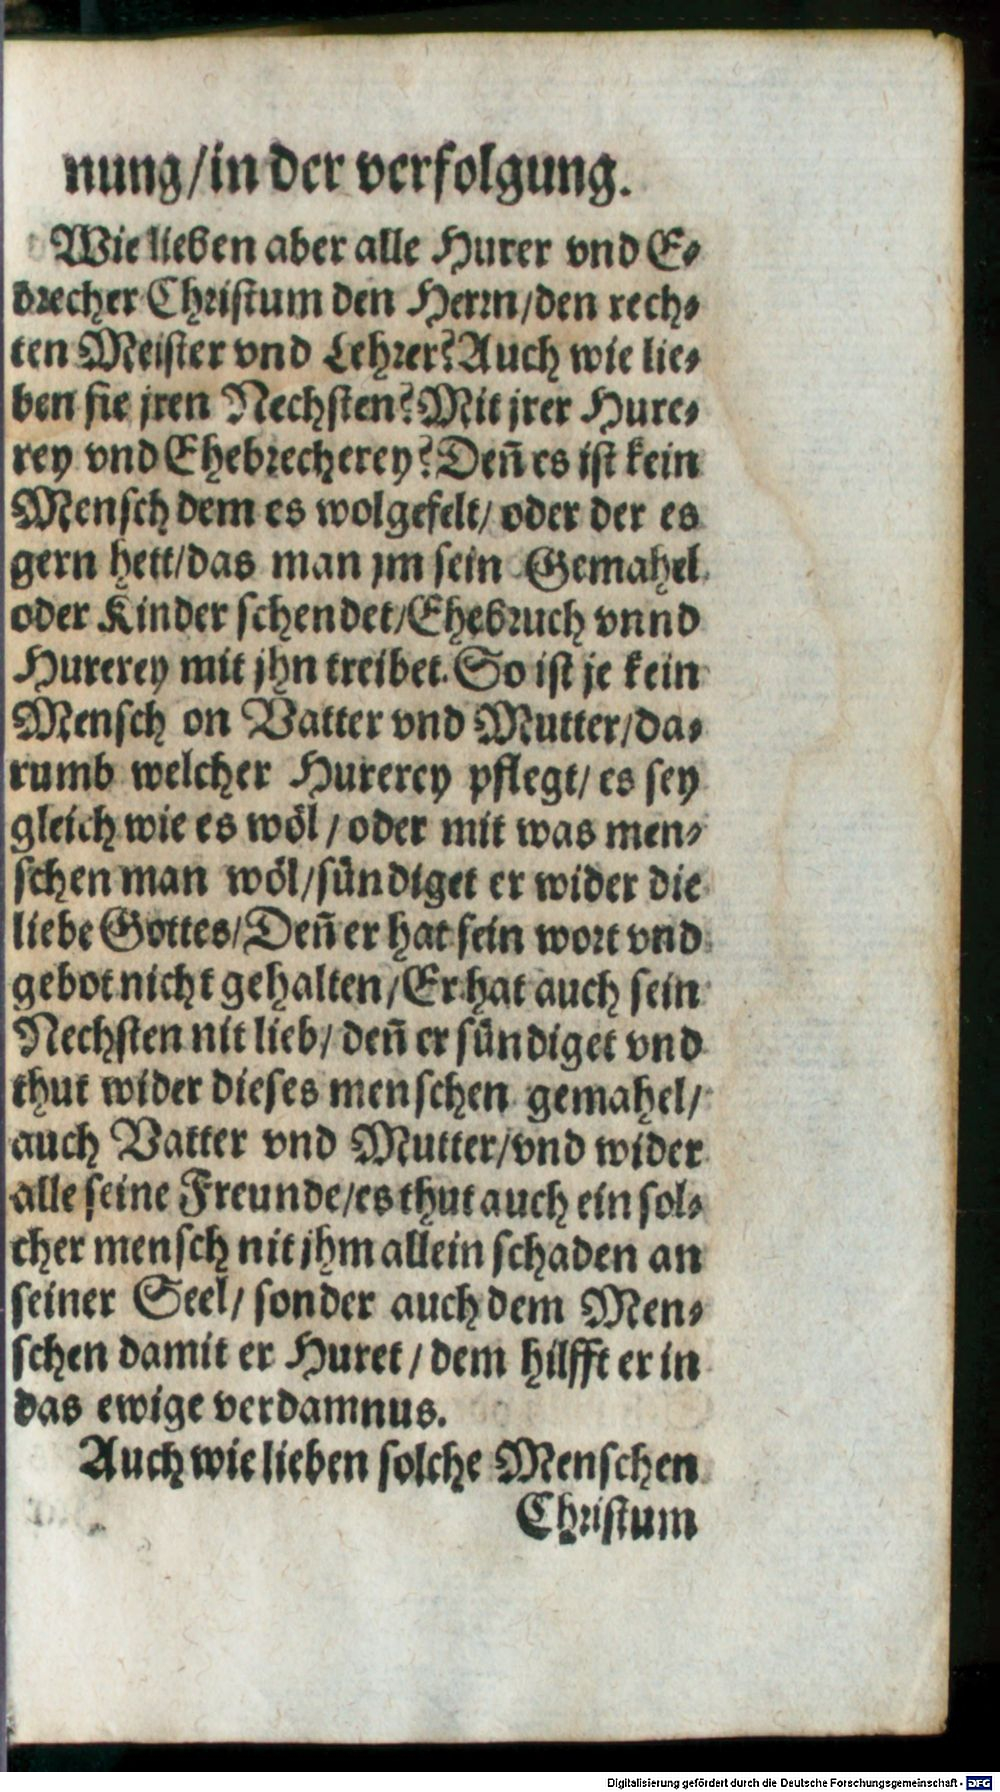 nung/in der verfolgung.
Wie lieben aber alle Hurer vnd E⸗
brecher Christum den Herrn/den rech⸗
ten Meister vnd Lehrer? Auch wie lie⸗
ben sie jren Nechsten? Mit jrer Hure⸗
rey vnd Ehebrecherey? Deñ es ist kein
Mensch dem es wolgefelt/ oder der es
gern hett/das man jm sein Gemahel
oder Kinder schendet/Ehebruch vnnd
Hurerey mit jhn treibet. So ist je kein
Mensch on Vatter vnd Mutter/da⸗
rumb welcher Hurerey pflegt/ es sey
gleich wie es wöl / oder mit was men⸗
schen man wöl/sündiget er wider die
liebe Gottes/Deñ er hat sein wort vnd
gebot nicht gehalten/Er hat auch sein
Nechsten nit lieb/ deñ er sündiget vnd
thut wider dieses menschen gemahel/
auch Vatter vnd Mutter/vnd wider
alle seine Freunde/es thut auch ein sol⸗
cher mensch nit jhm allein schaden an
seiner Seel/ sonder auch dem Men⸗
schen damit er Huret / dem hilfft er in
das ewige verdamnus.
Auch wie lieben solche Menschen
Christum
Digitalisierung gefördert durch die Deutsche Forschungsgemeinschaft - DFG